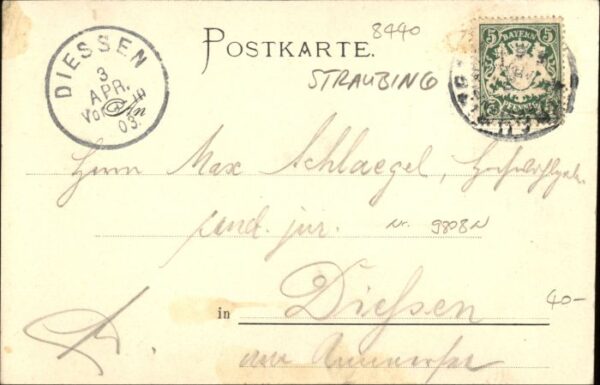 8440
POSTKARTE.
STRAUBING
DIESSEN
3
APR.
Vor
03.
5 BAYERN 5
PFENNIG
Herrn Max Schlaegel,
cand. jur. Nr. 9808N
in Diessen
40-
am Ammersee